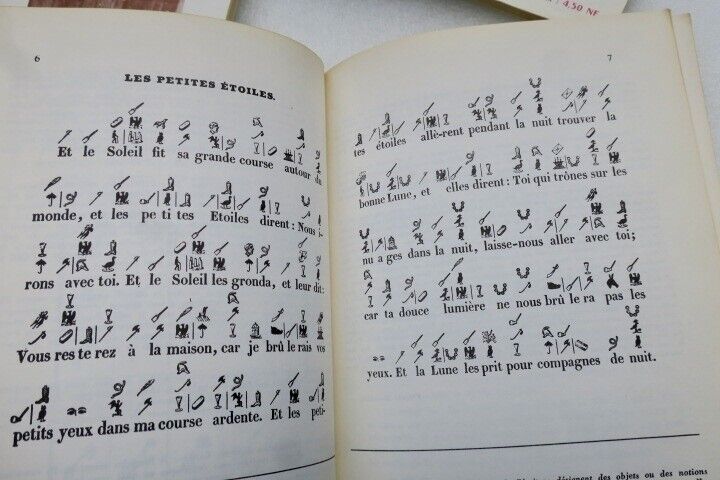 4,50 NF
6
LES PETITES ÉTOILES.
Et le Soleil fit sa grande course autour du
monde, et les pe ti tes Etoiles dirent : Nous i-
rons avec toi. Et le Soleil les gronda, et leur dit :
Vous res te rez à la maison, car je brû le rais vos
petits yeux dans ma course ardente. Et les peti-
7
tes étoiles allè-rent pendant la nuit trouver la
bonne Lune, et elles dirent : Toi qui trônes sur les
nu a ges dans la nuit, laisse-nous aller avec toi ;
car ta douce lumière ne nous brû le ra pas les
yeux. Et la Lune les prit pour compagnes de nuit.
désignent des objets ou des notions